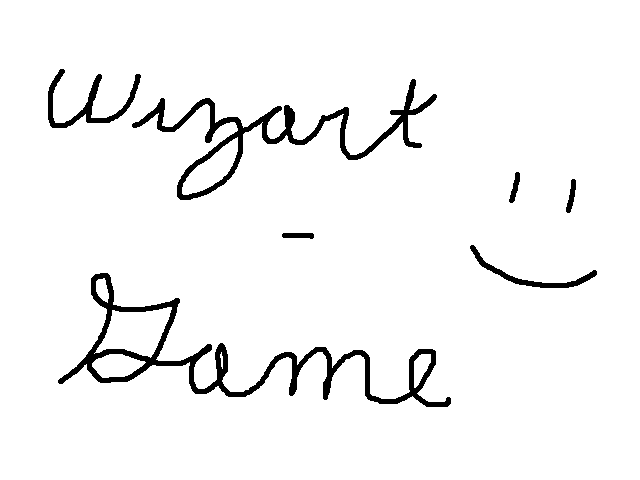 Wizart
-
Game